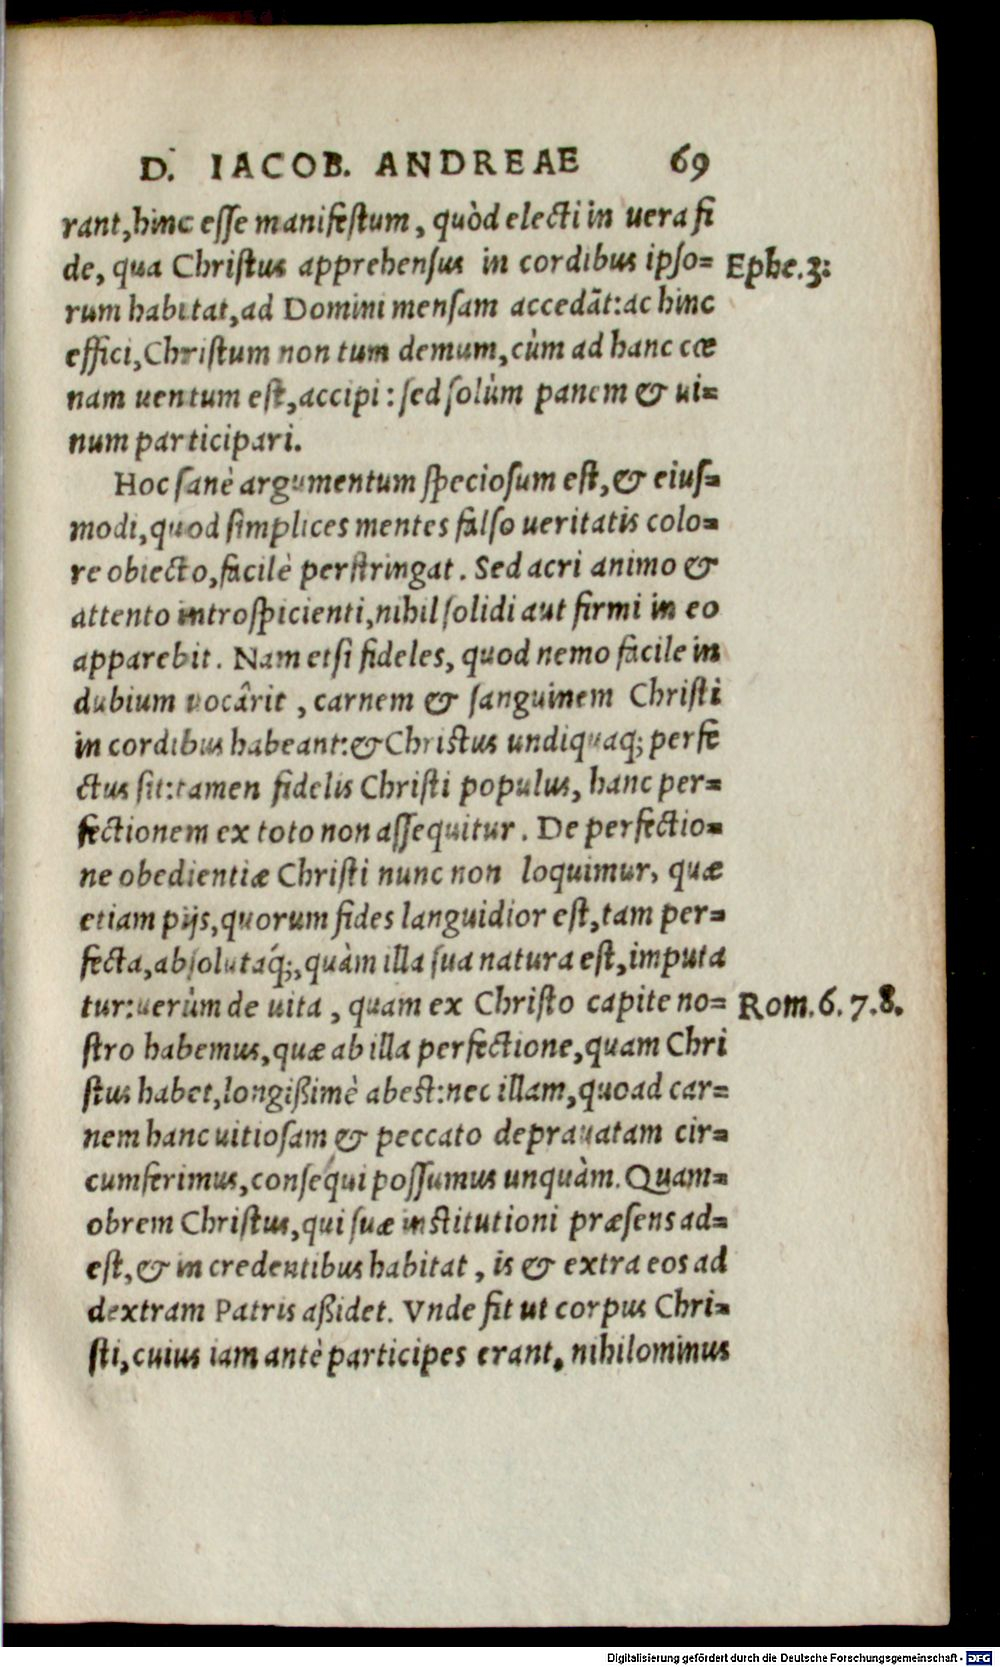 D. IACOB. ANDREAE 69
rant,hinc esse manifestum, quòd electi in uera fi
de, qua Christus apprehensus in cordibus ipso= Ephe.3:
rum habitat,ad Domini mensam accedãt:ac hinc
effici,Christum non tum demum,cùm ad hanc cœ
nam uentum est,accipi: sed solùm panem & ui=
num participari.
Hoc sanè argumentum speciosum est,& eius=
modi,quod simplices mentes falso ueritatis colo=
re obiecto,facilè perstringat. Sed acri animo &
attento introspicienti,nihil solidi aut firmi in eo
apparebit. Nam etsi fideles, quod nemo facile in
dubium vocârit, carnem & sanguinem Christi
in cordibus habeant:& Christus undiquaq; perfe
ctus sit:tamen fidelis Christi populus, hanc per=
fectionem ex toto non assequitur. De perfectio=
ne obedientiæ Christi nunc non loquimur, quæ
etiam pijs,quorum fides languidior est,tam per=
fecta,absolutaq́;,quàm illa sua natura est,imputa
tur:uerùm de uita, quam ex Christo capite no= Rom.6.7.8.
stro habemus,quæ ab illa perfectione,quam Chri
stus habet,longißimè abest:nec illam,quoad car=
nem hanc uitiosam & peccato deprauatam cir=
cumferimus,consequi possumus unquàm. Quam=
obrem Christus,qui suæ institutioni præsens ad=
est,& in credentibus habitat, is & extra eos ad
dextram Patris aßidet. Vnde fit ut corpus Chri=
sti,cuius iam antè participes erant, nihilominus
Digitalisierung gefördert durch die Deutsche Forschungsgemeinschaft - DFG